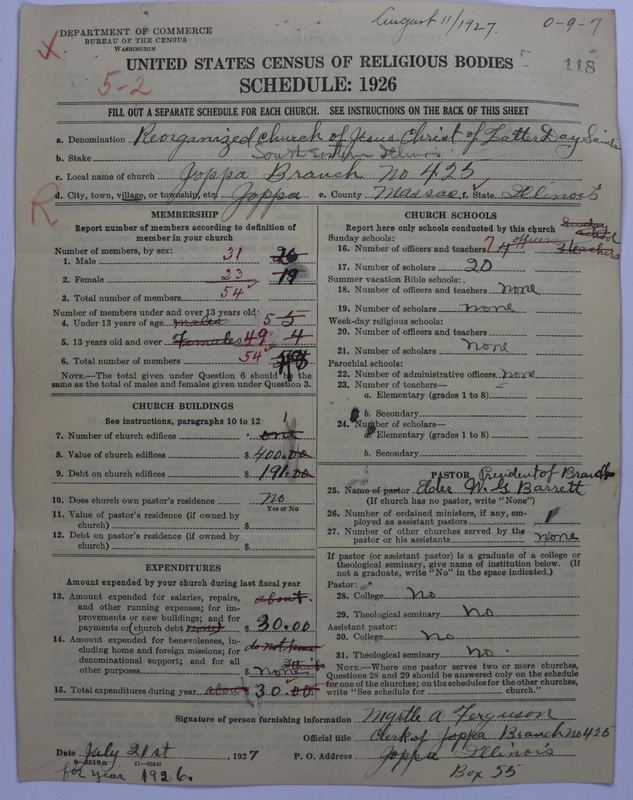 August 11/1927.
0-9-7
DEPARTMENT OF COMMERCE
BUREAU OF THE CENSUS
WASHINGTON
X
5-2
118
UNITED STATES CENSUS OF RELIGIOUS BODIES
SCHEDULE: 1926
FILL OUT A SEPARATE SCHEDULE FOR EACH CHURCH. SEE INSTRUCTIONS ON THE BACK OF THIS SHEET
a. Denomination Reorganized Church of Jesus Christ of Latter Day Saints
b. Stake South Eastern Illinois
c. Local name of church Joppa Branch No 425
d. City, town, village, or township, etc. Joppa e. County Massac f. State Illinois
R
MEMBERSHIP
Report number of members according to definition of member in your church
Number of members, by sex:
1. Male 31 26
2. Female 23 19
3. Total number of members 54
Number of members under and over 13 years old:
4. Under 13 years of age males 5 5
5. 13 years old and over Females 49 4
6. Total number of members 54
NOTE.—The total given under Question 6 should be the same as the total of males and females given under Question 3.
CHURCH BUILDINGS
See instructions, paragraphs 10 to 12
7. Number of church edifices 1 one
8. Value of church edifices $ 400.00
9. Debt on church edifices $ 191.00
10. Does church own pastor's residence No
Yes or No
11. Value of pastor's residence (if owned by church) $
12. Debt on pastor's residence (if owned by church) $
EXPENDITURES
Amount expended by your church during last fiscal year
13. Amount expended for salaries, repairs, and other running expenses; for improvements or new buildings; and for payments on church debt about. $ 30.00
14. Amount expended for benevolences, including home and foreign missions; for denominational support; and for all other purposes $ none
15. Total expenditures during year about $ 30.00
CHURCH SCHOOLS
Report here only schools conducted by this church
Sunday schools:
16. Number of officers and teachers 7 4 officers 3 teachers
17. Number of scholars 20
Summer vacation Bible schools:
18. Number of officers and teachers none
19. Number of scholars none
Week-day religious schools:
20. Number of officers and teachers
21. Number of scholars none
Parochial schools:
22. Number of administrative officers none
23. Number of teachers—
a. Elementary (grades 1 to 8)
b. Secondary
24. Number of scholars—
a. Elementary (grades 1 to 8)
b. Secondary
PASTOR President of Branch
25. Name of pastor Elder W. G. Barrett
(If church has no pastor, write "None")
26. Number of ordained ministers, if any, employed as assistant pastors 1
27. Number of other churches served by the pastor or his assistants none
If pastor (or assistant pastor) is a graduate of a college or theological seminary, give name of institution below. (If not a graduate, write "No" in the space indicated.)
Pastor:
28. College No
29. Theological seminary No
Assistant pastor:
30. College No
31. Theological seminary No.
NOTE.—Where one pastor serves two or more churches, Questions 28 and 29 should be answered only on the schedule for one of the churches; on the schedules for the other churches, write "See schedule for church."
Signature of person furnishing information Myrtle A Ferguson
Official title Clerk of Joppa Branch No 425
Date July 21st, 1927 P. O. Address Joppa Illinois
for year 1926.
Box 55